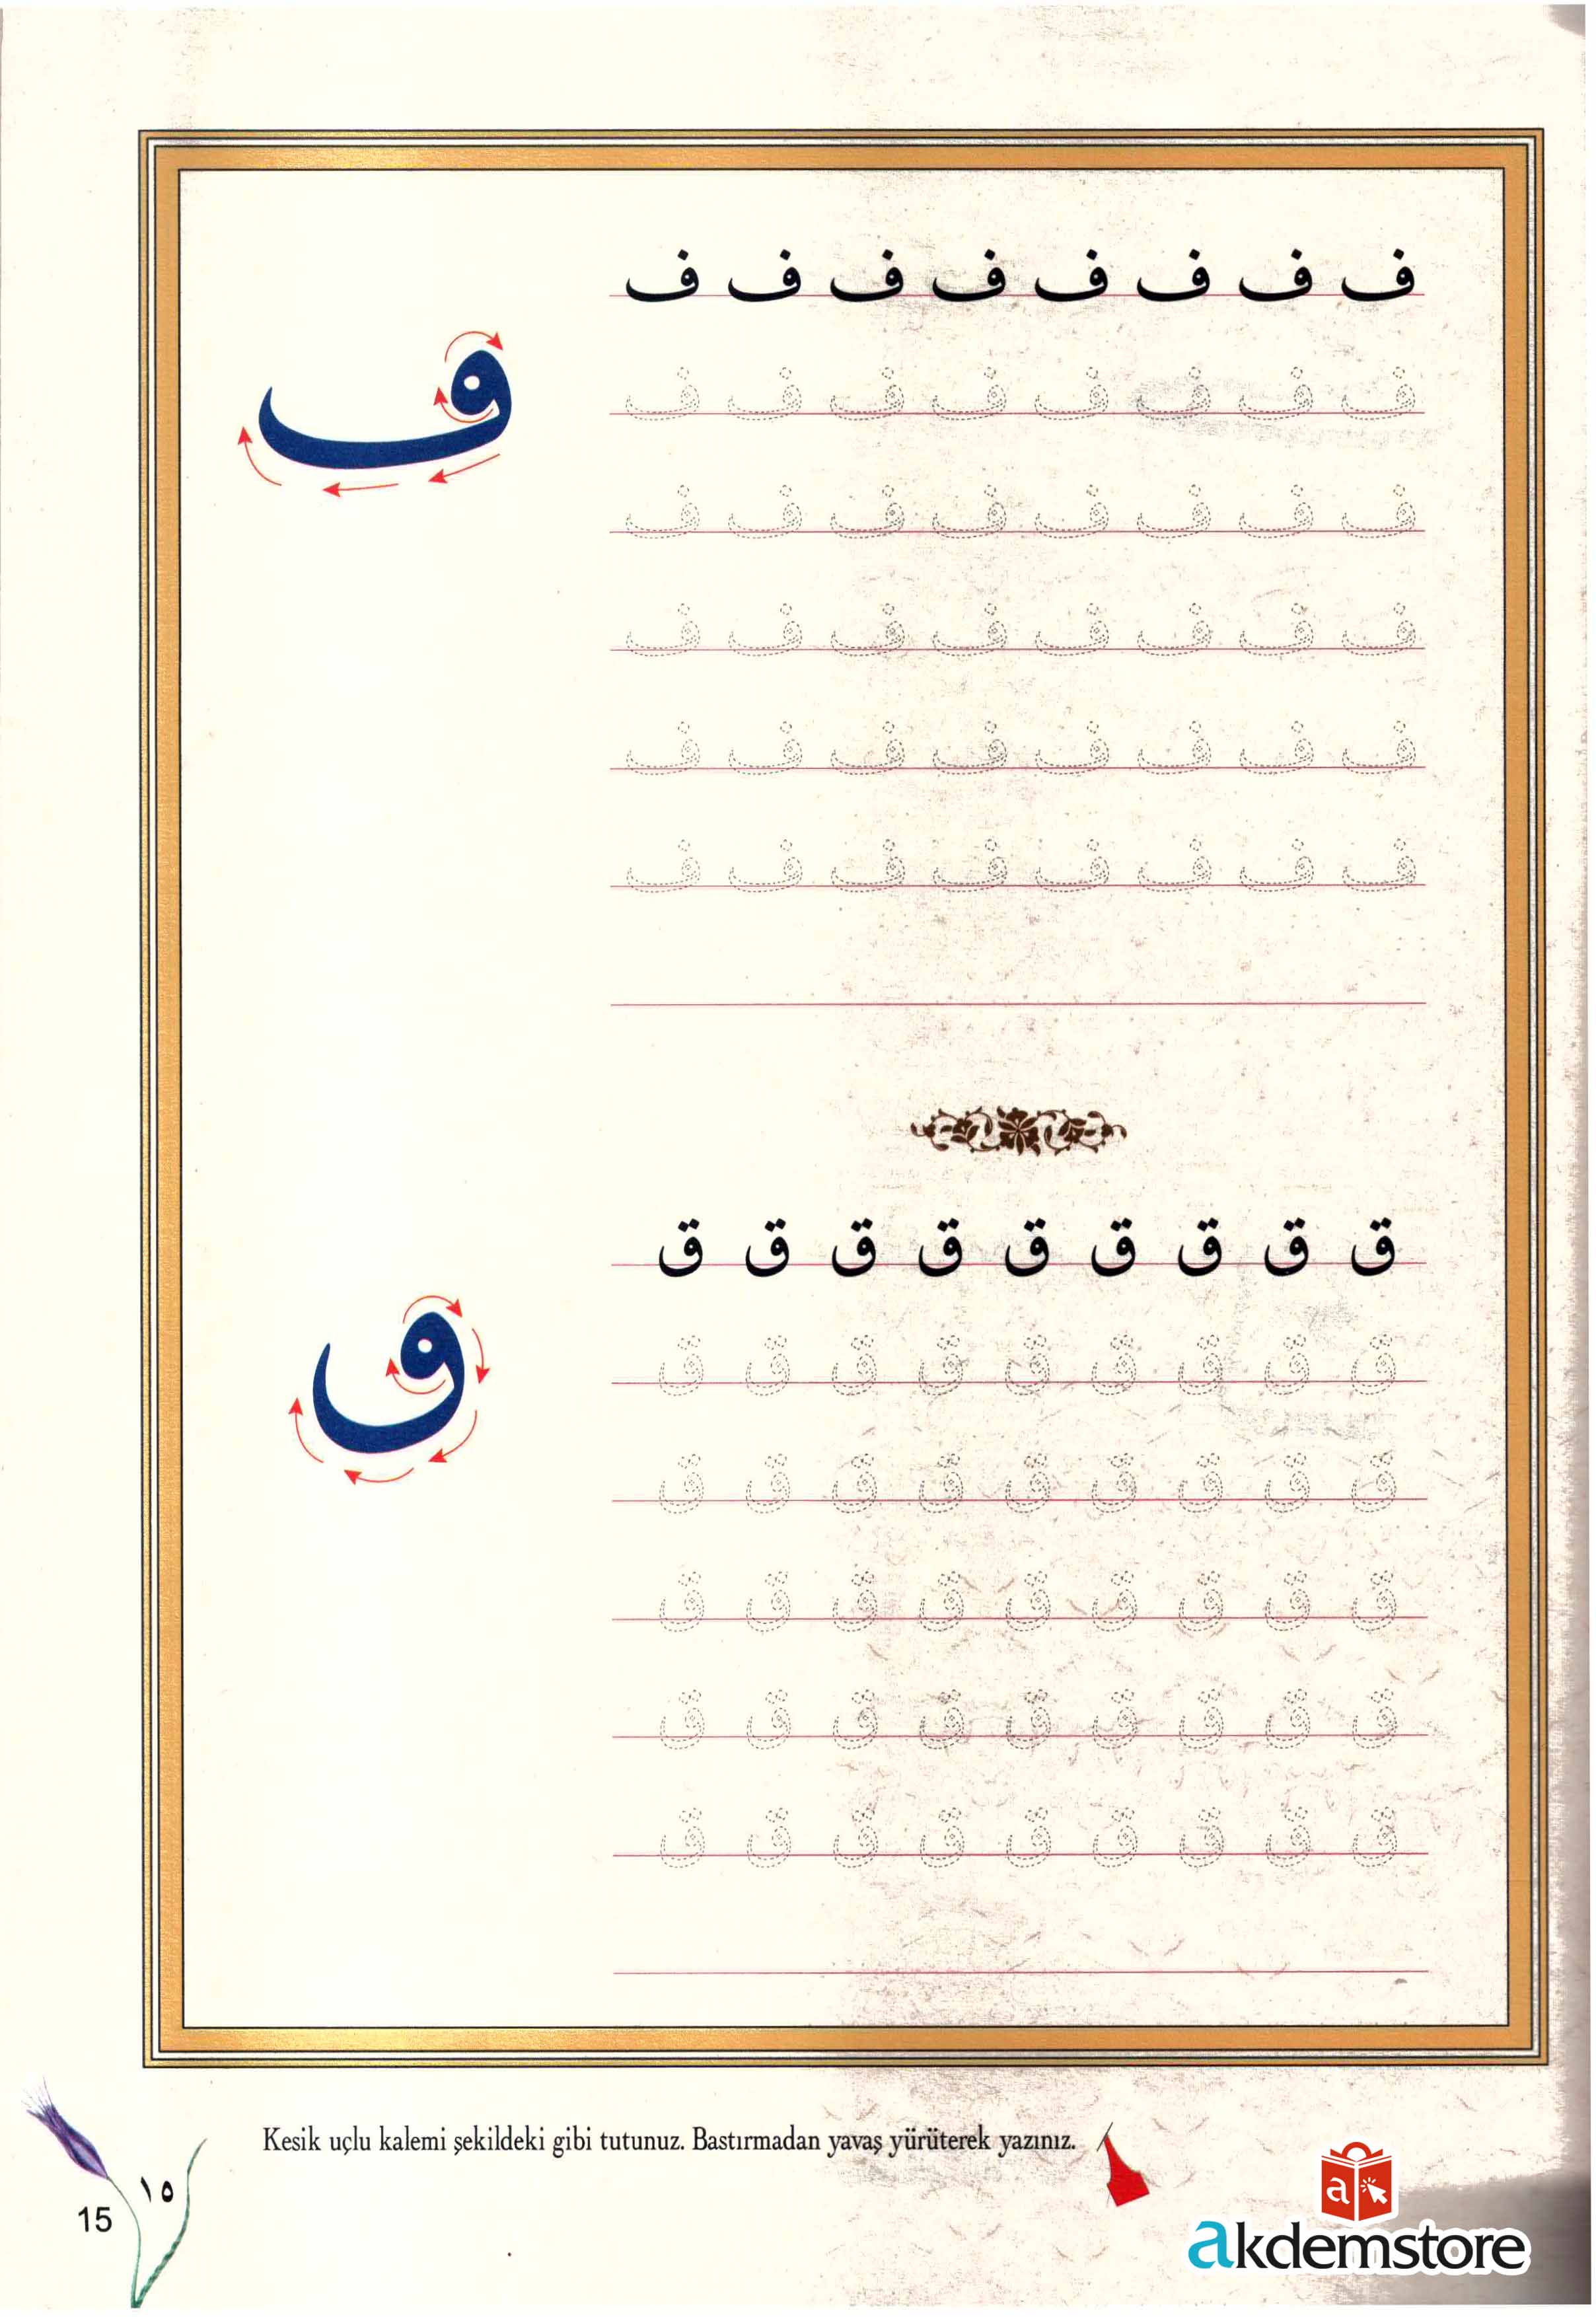 ف ف ف ف ف ف ف ف
ف
ف ف ف ف ف ف ف ف
ف ف ف ف ف ف ف ف
ف ف ف ف ف ف ف ف
ف ف ف ف ف ف ف ف
ف ف ف ف ف ف ف ف
ق ق ق ق ق ق ق ق ق
ق
ق ق ق ق ق ق ق ق ق
ق ق ق ق ق ق ق ق ق
ق ق ق ق ق ق ق ق ق
ق ق ق ق ق ق ق ق ق
ق ق ق ق ق ق ق ق ق
Kesik uçlu kalemi şekildeki gibi tutunuz. Bastırmadan yavaş yürüterek yazınız.
١٥
15
a
akdemstore